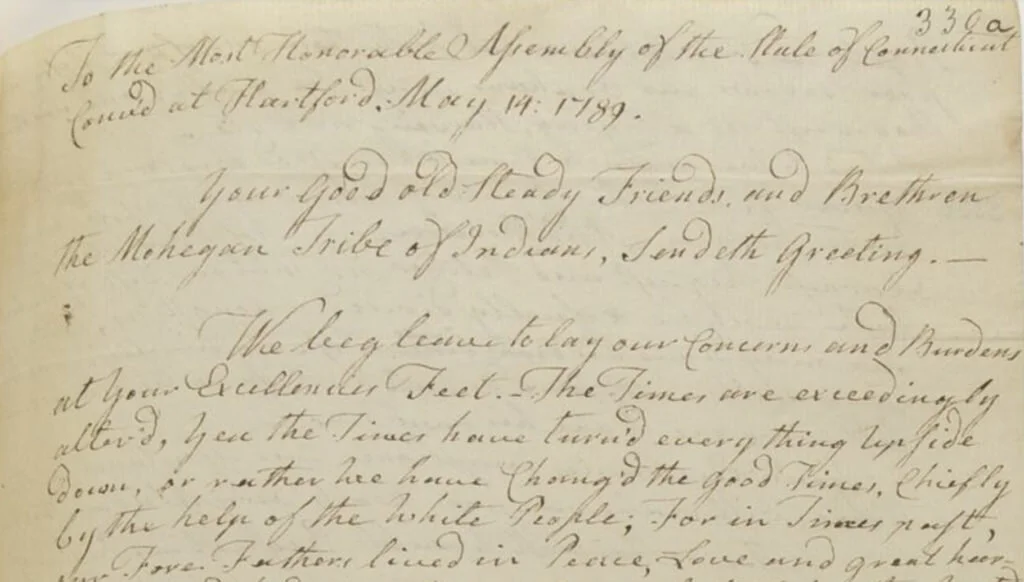 330a
To the Most Honorable Assembly of the State of Connecticut
Conv'd at Hartford. May 14: 1789.
Your Good old Steady Friends, and Brethren
the Mohegan Tribe of Indians, Sendeth Greeting. —
We beg leave to lay our Concerns and Burdens
at Your Excellencies Feet. – The Times are exceedingly
alter'd, Yea the Times have turn'd every thing Upside
down, or rather we have Chang'd the good Times, Chiefly
by the help of the White People; For in Times past,
our Fore Fathers lived in Peace, Love and great har-